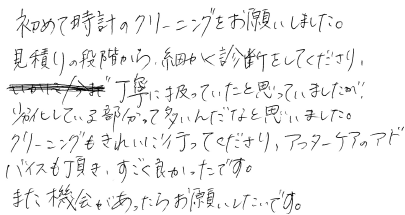 初めて時計のクリーニングをお願いしました。
見積りの段階から、細かく診断をしてくださり、
丁寧に扱っていたと思っていましたが、
劣化している部分って多いんだなと思いました。
クリーニングもきれいに行ってくださり、アフターケアのアド
バイスも頂き、すごく良かったです。
また機会があったらお願いしたいです。